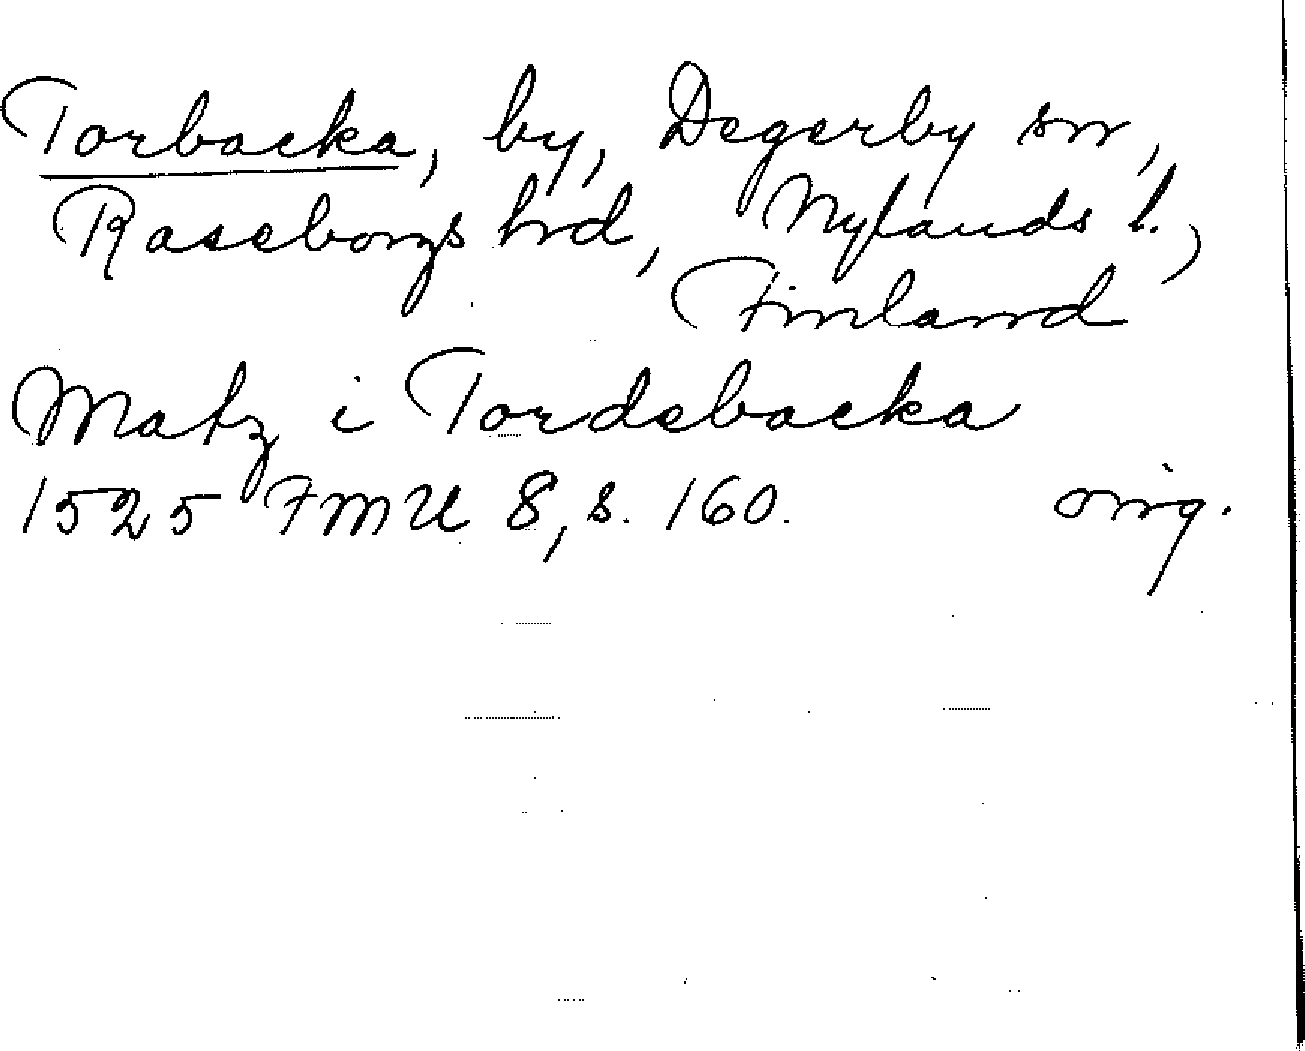 Torbacka, by, Degerby sn,
Raseborgs hrd, Nylands l.,
Finland
Matz i Tordebacka
1525 FMU 8, s. 160. orig.